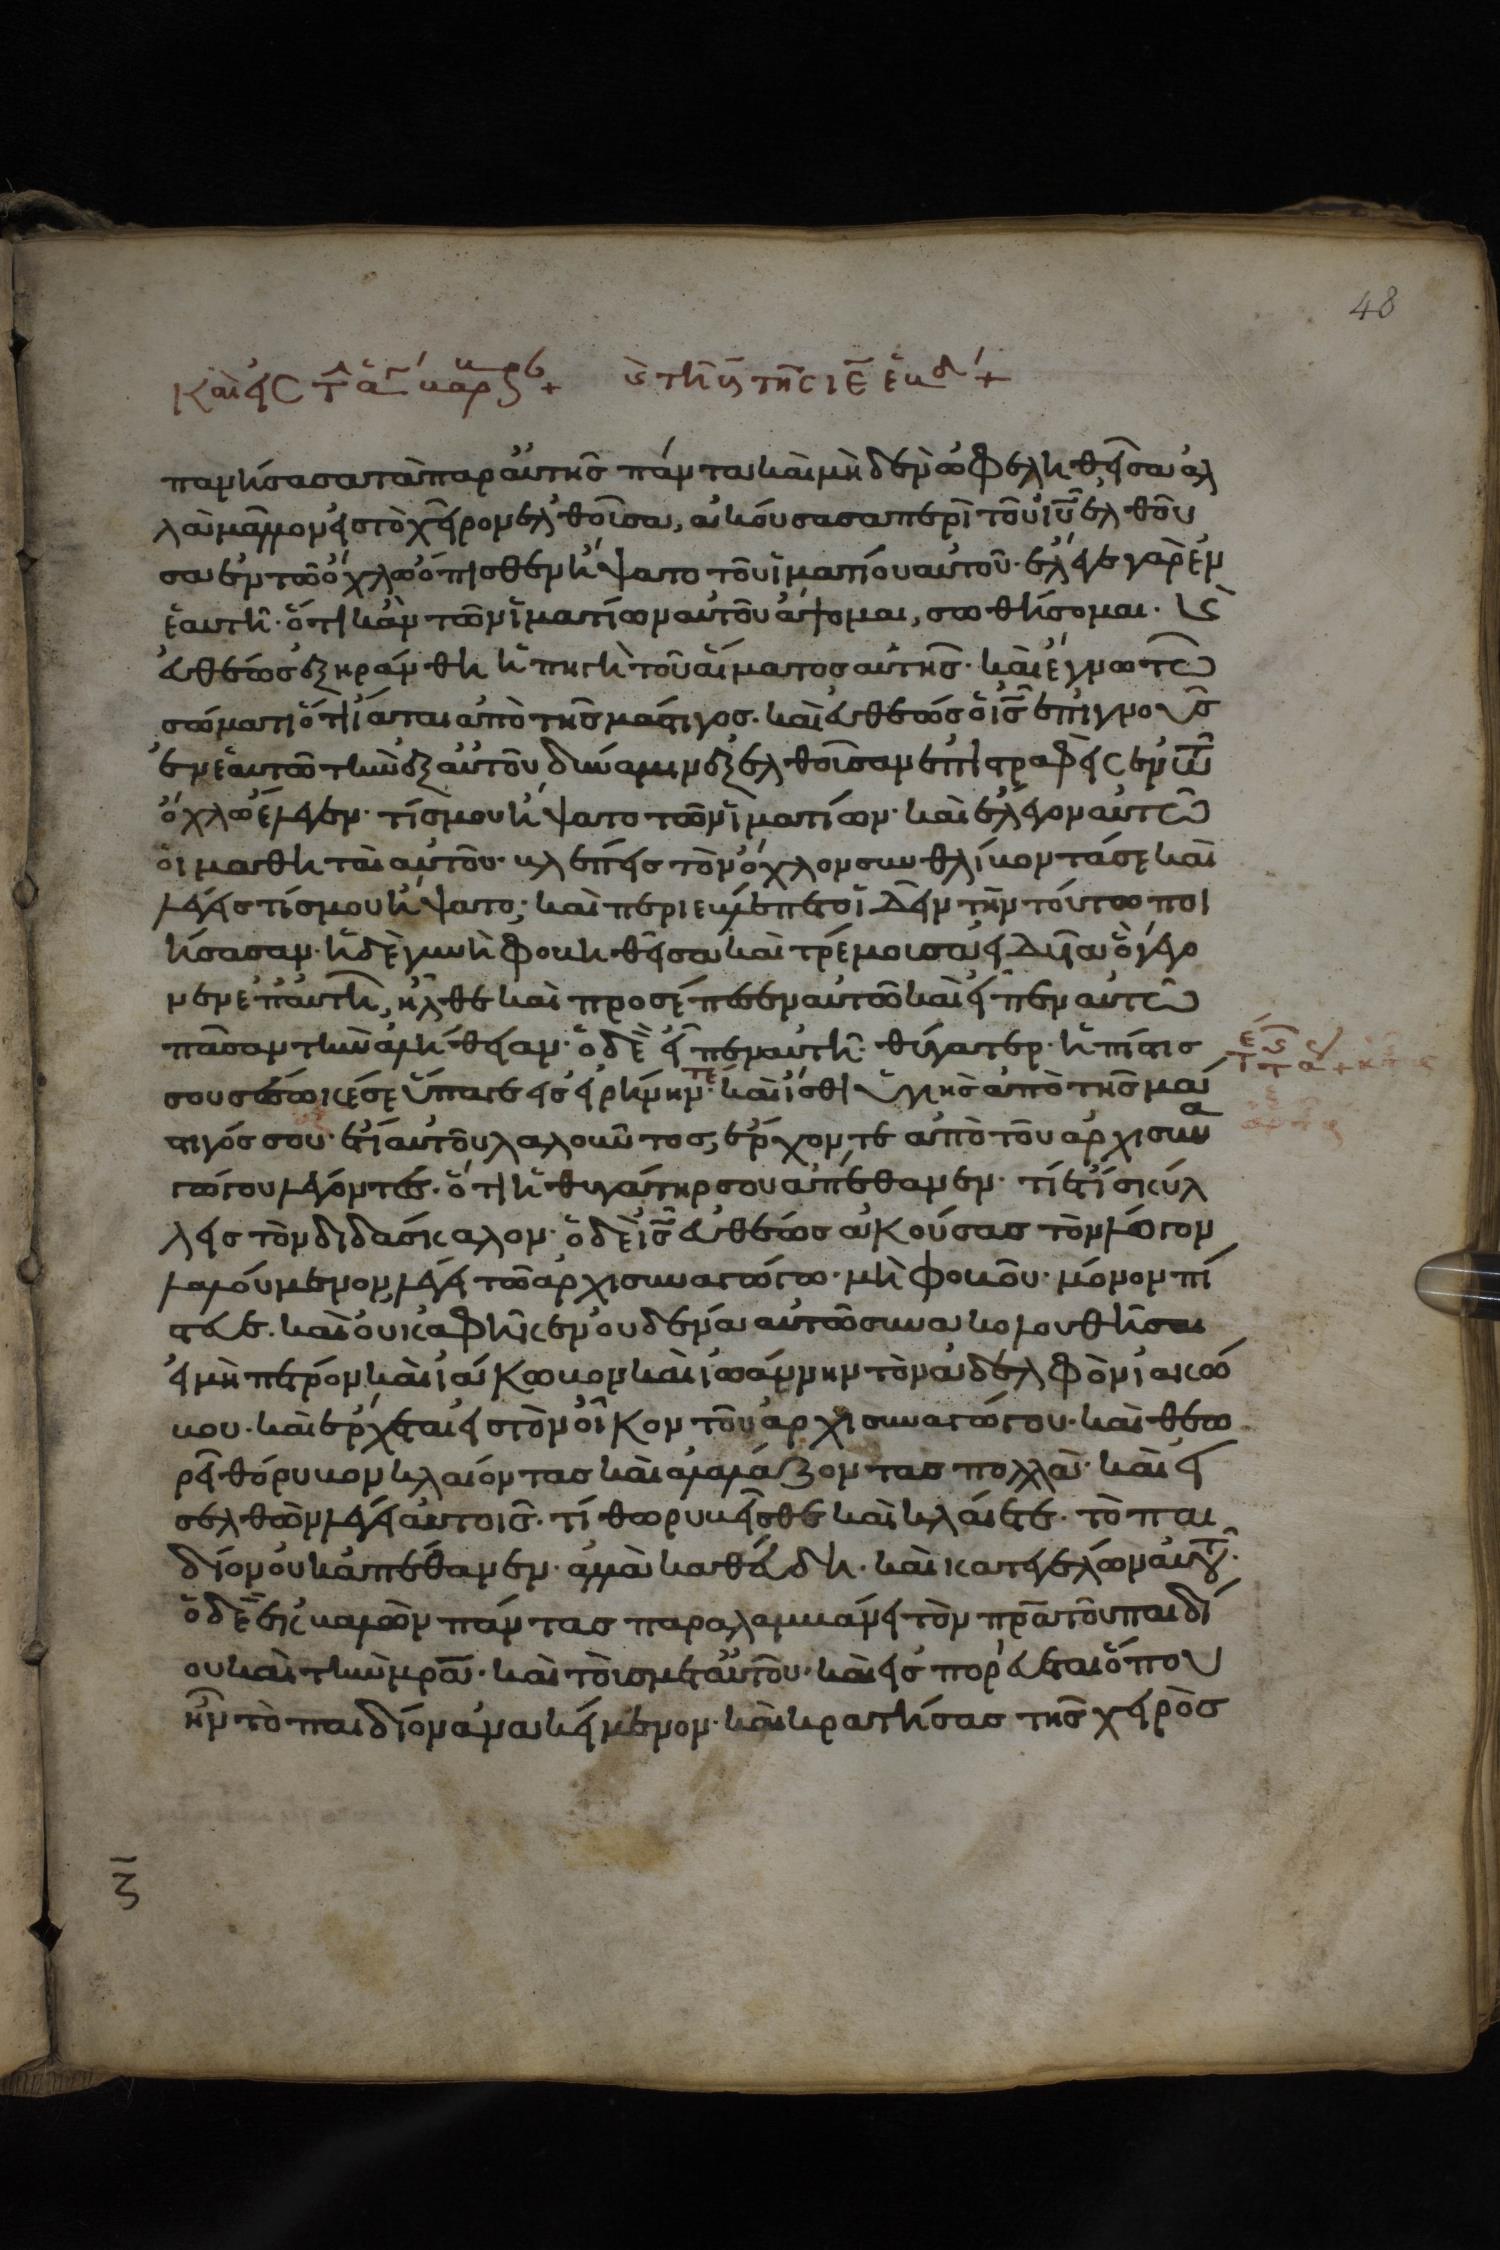 48
πανήσασα τὰ παρ αὐτῆς πάντα καὶ μὴδὲν ὠφεληθεῖσα ἀλ
λὰ μᾶλλον εἰς τὸ χεῖρον ἐλθοῦσα, ἀκούσασα περὶ τοῦ ιυ ἐλθοῦ
σα ἐν τῶ ὄχλω ὄπισθεν ἥψατο τοῦ ἱματίου αὐτοῦ· ἔλεγε γὰρ ἐν
ἑαυτῆ· ὅτι κἂν τῶν ἱματίων αὐτοῦ ἅψομαι, σωθήσομαι· κ
εὐθέως ἐξηράνθη ἡ πηγὴ τοῦ αἵματος αὐτῆς· καὶ ἔγνω τῶ
σώματι ὅτι ἴαται ἀπὸ τῆς μάστιγος· καὶ εὐθέως ὁ ις ἐπιγνοὺς
ἐν ἑαυτῶ τὴν ἐξ αὐτοῦ δύναμιν ἐξελθοῦσαν ἐπιστραφεὶς ἐν τῶ
ὄχλω ἔλεγεν· τίς μου ἥψατο τῶν ἱματίων· καὶ ἔλεγον αὐτῶ
οἱ μαθηταὶ αὐτοῦ· βλέπεις τὸν ὄχλον συνθλίβοντά σε καὶ
λέγεις τίς μου ἥψατο; καὶ περιεβλέπετο ἰδεῖν τὴν τοῦτο ποι
ήσασαν· ἡ δὲ γυνὴ φοβηθεῖσα καὶ τρέμουσα εἰδυῖα ὃ γέγο
νεν ἐπ αὐτῆ, ἦλθε καὶ προσέπεσεν αὐτῶ καὶ εἶπεν αὐτῶ
πᾶσαν τὴν ἀλήθειαν· ὁ δὲ εἶπεν αὐτῆ· θύγατερ· ἡ πίστις
σου σέσωκέ σε ὕπαγε εἰς εἰρήνην· καὶ ἴσθι ὑγιὴς ἀπὸ τῆς μά
στιγός σου· ἔτι αὐτοῦ λαλοῦντος, ἔρχονται ἀπὸ τοῦ ἀρχισυνα
γώγου λέγοντες· ὅτι ἡ θυγάτηρ σου ἀπέθανεν· τί ἔτι σκύλ
λεις τὸν διδάσκαλον· ὁ δὲ ις εὐθέως ἀκούσας τὸν λόγον
λαλούμενον, λέγει τῶ ἀρχισυναγώγω· μὴ φοβοῦ· μόνον πί
στευε· καὶ οὐκ ἀφῆκεν οὐδένα αὐτῶ συνακολουθῆσαι
εἰ μὴ πέτρον καὶ ἰάκωβον καὶ ἰωάννην τὸν ἀδελφὸν ἰακώ
βου· καὶ ἔρχεται εἰς τὸν οἶκον τοῦ ἀρχισυναγώγου· καὶ θεω
ρεῖ θόρυβον κλαίοντας καὶ ἀλαλάζοντας πολλά· καὶ εἰ
σελθὼν λέγει αὐτοῖς· τί θορυβεῖσθε καὶ κλαίετε· τὸ παι
δίον οὐκ ἀπέθανεν· ἀλλὰ καθεύδη· καὶ κατεγέλων αὐτοῦ·
ὁ δὲ ἐκβαλὼν πάντας παραλαμβάνει τὸν πρα τοῦ παιδί
ου καὶ τὴν μρα· καὶ τοὺς μετ αὐτοῦ· καὶ εἰσπορεύεται ὅπου
ἦν τὸ παιδίον ἀνακείμενον· καὶ κρατήσας τῆς χειρὸς
ζ